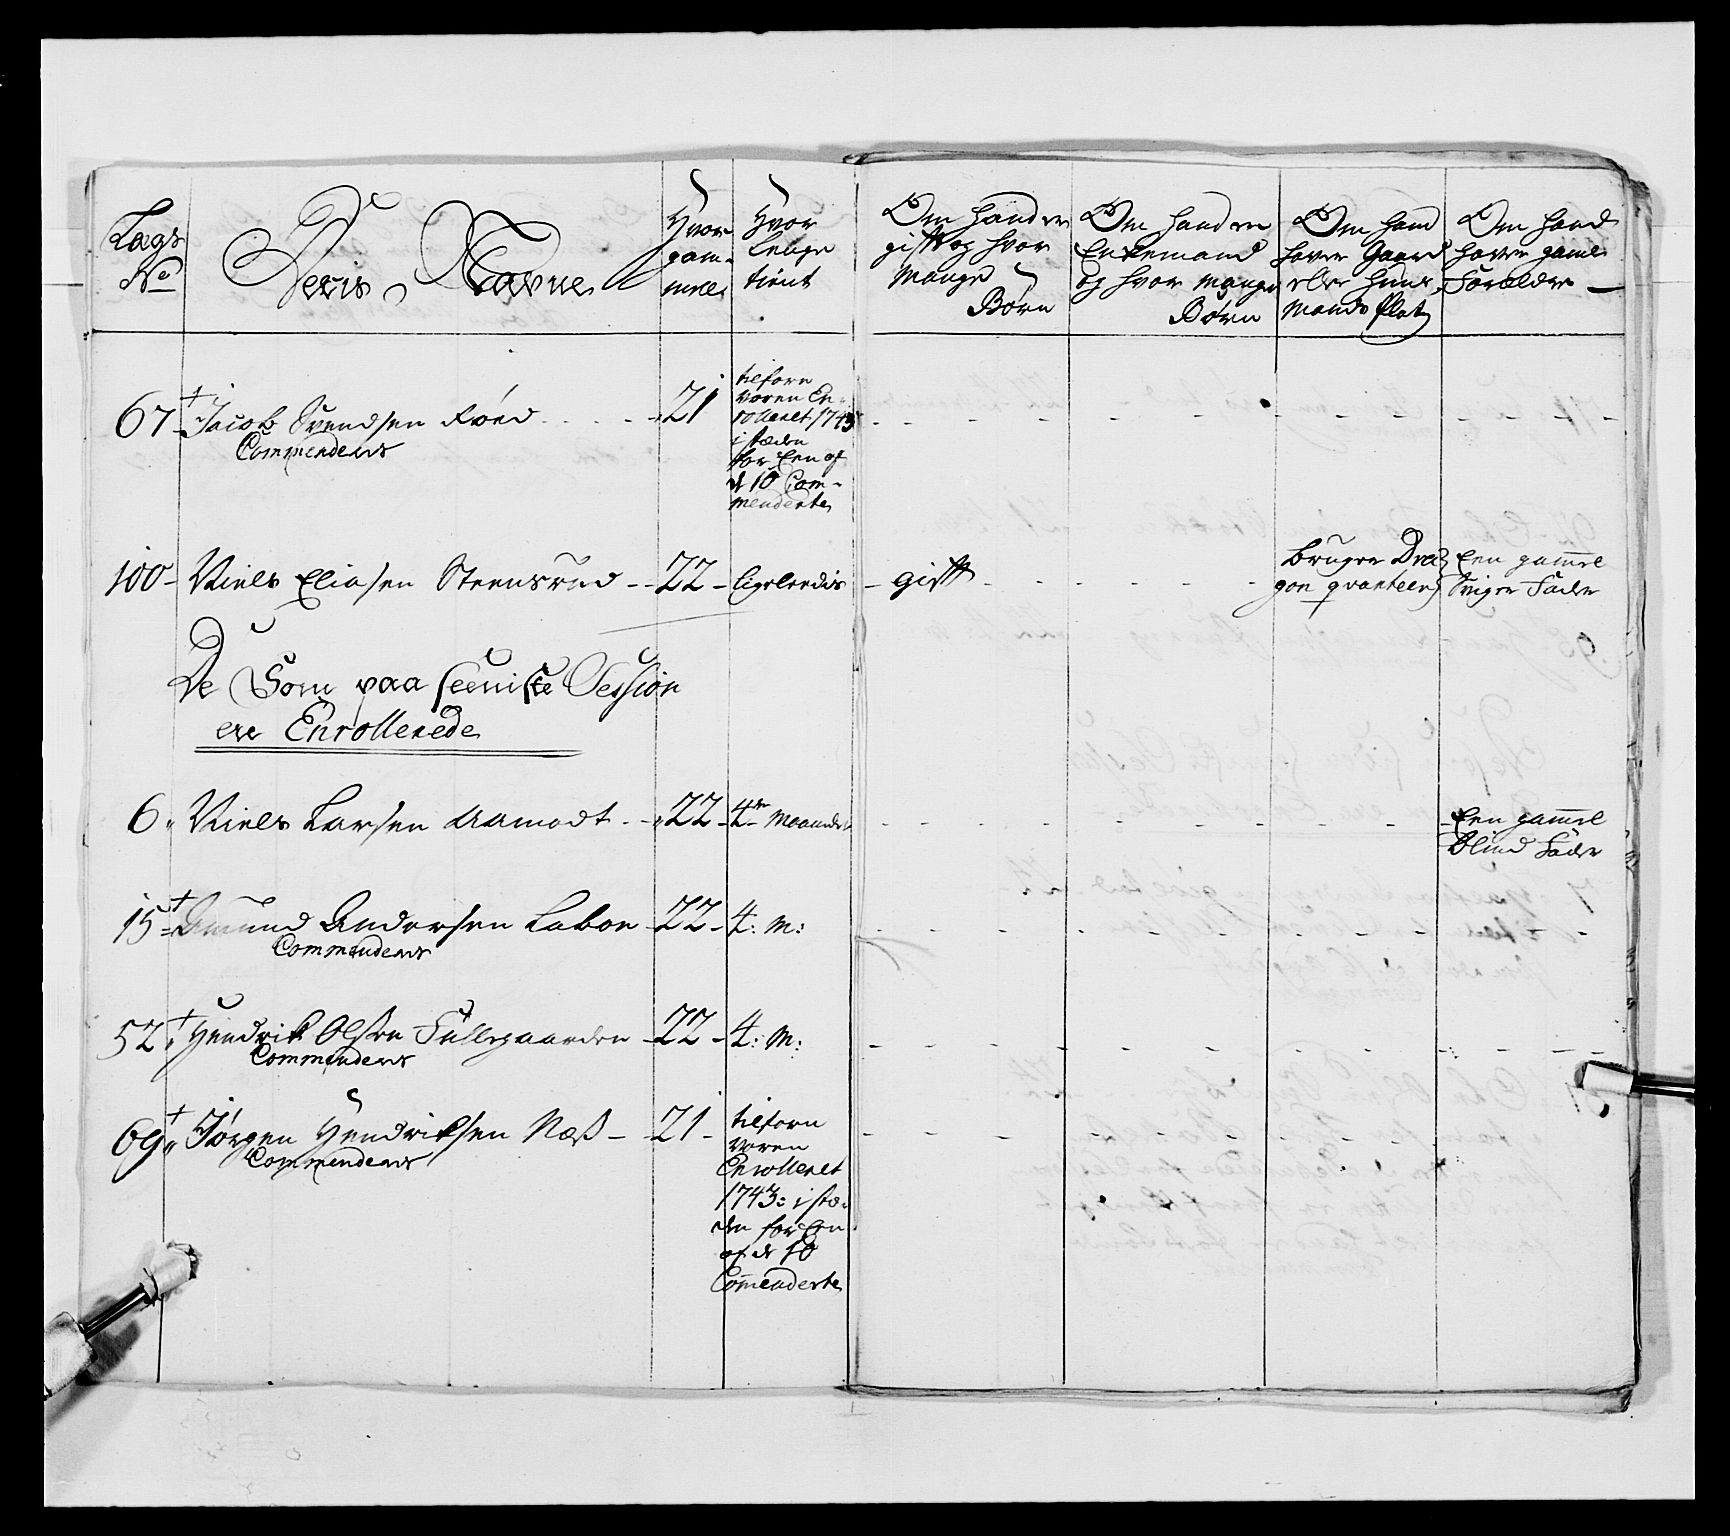 Lægs
No
Deris Navne
Hvor
gam-
mel
Hvor
lenge
tient
Om Hand er
gift og hvor
Mange
Børn
Om Hand er
Enkemand
og hvor mange
Børn
Om Hand
haver Gaard
eller Huus
Mands Plads
Om Hand
haver gamle
Forældre
67 † Jacob Svendsen Röed - 21
Commenderes
tilforn
voren En-
rolleret 1743
i stæden
for Een af
de 10 Com-
menderte
100 - Niels Eliasen Steensrud - 22 - ligeleedis - gift
bruger Dra-
gon qvarteer
Een gammel
Sviger Fader
De Som paa seeniste Session
ere Enrollerede
6 Niels Larsen Aamodt - 22 - 4re Maaneder
Een gammel
blind Fader
15 † Amund Andersen Labon - 22 - 4: M:
Commenderes
52 † Hendrik Olsen Fullegaarden - 22 - 4: M:
Commenderes
69 † Jörgen Hendriksen Næss - 21 -
Commenderes
tilforn
voren
Enrolleret
1743: i stæ-
den for Een
af de 10
Commenderte